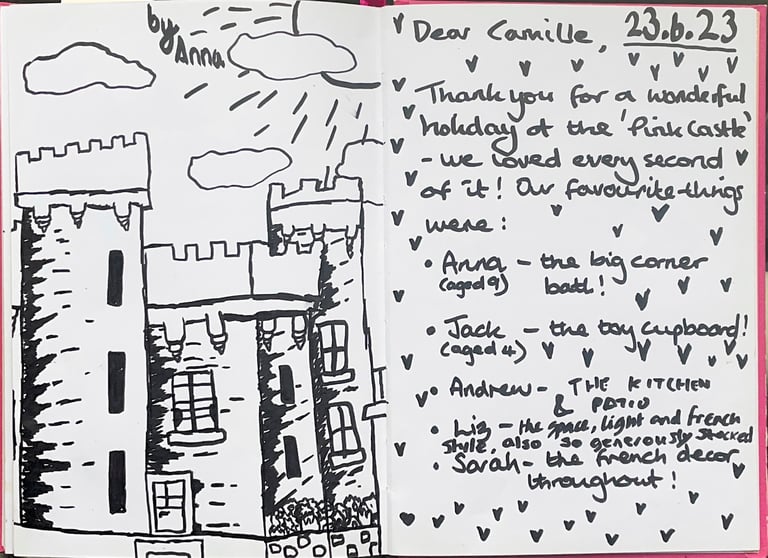 by
Anna
Dear Camille, 23.6.23
Thank you for a wonderful
holiday at the 'Pink Castle'
- we loved every second
of it! Our favourite things
were:
• Anna - the big corner
(aged 9) bath!
• Jack - the toy cupboard!
(aged 4)
• Andrew - THE KITCHEN
& PATIO
• Liz - the space, light and french
style, also so generously stocked
• Sarah - the french decor
throughout!